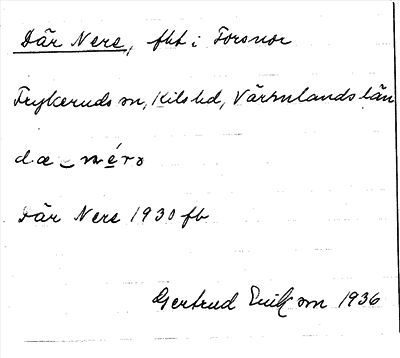 Där Nere, fbt i Forsnor
Frykeruds sn, Kils hd, Värmlands län
dæ ‿ néro
Där Nere 1930 fb
Gertrud Erikson 1936